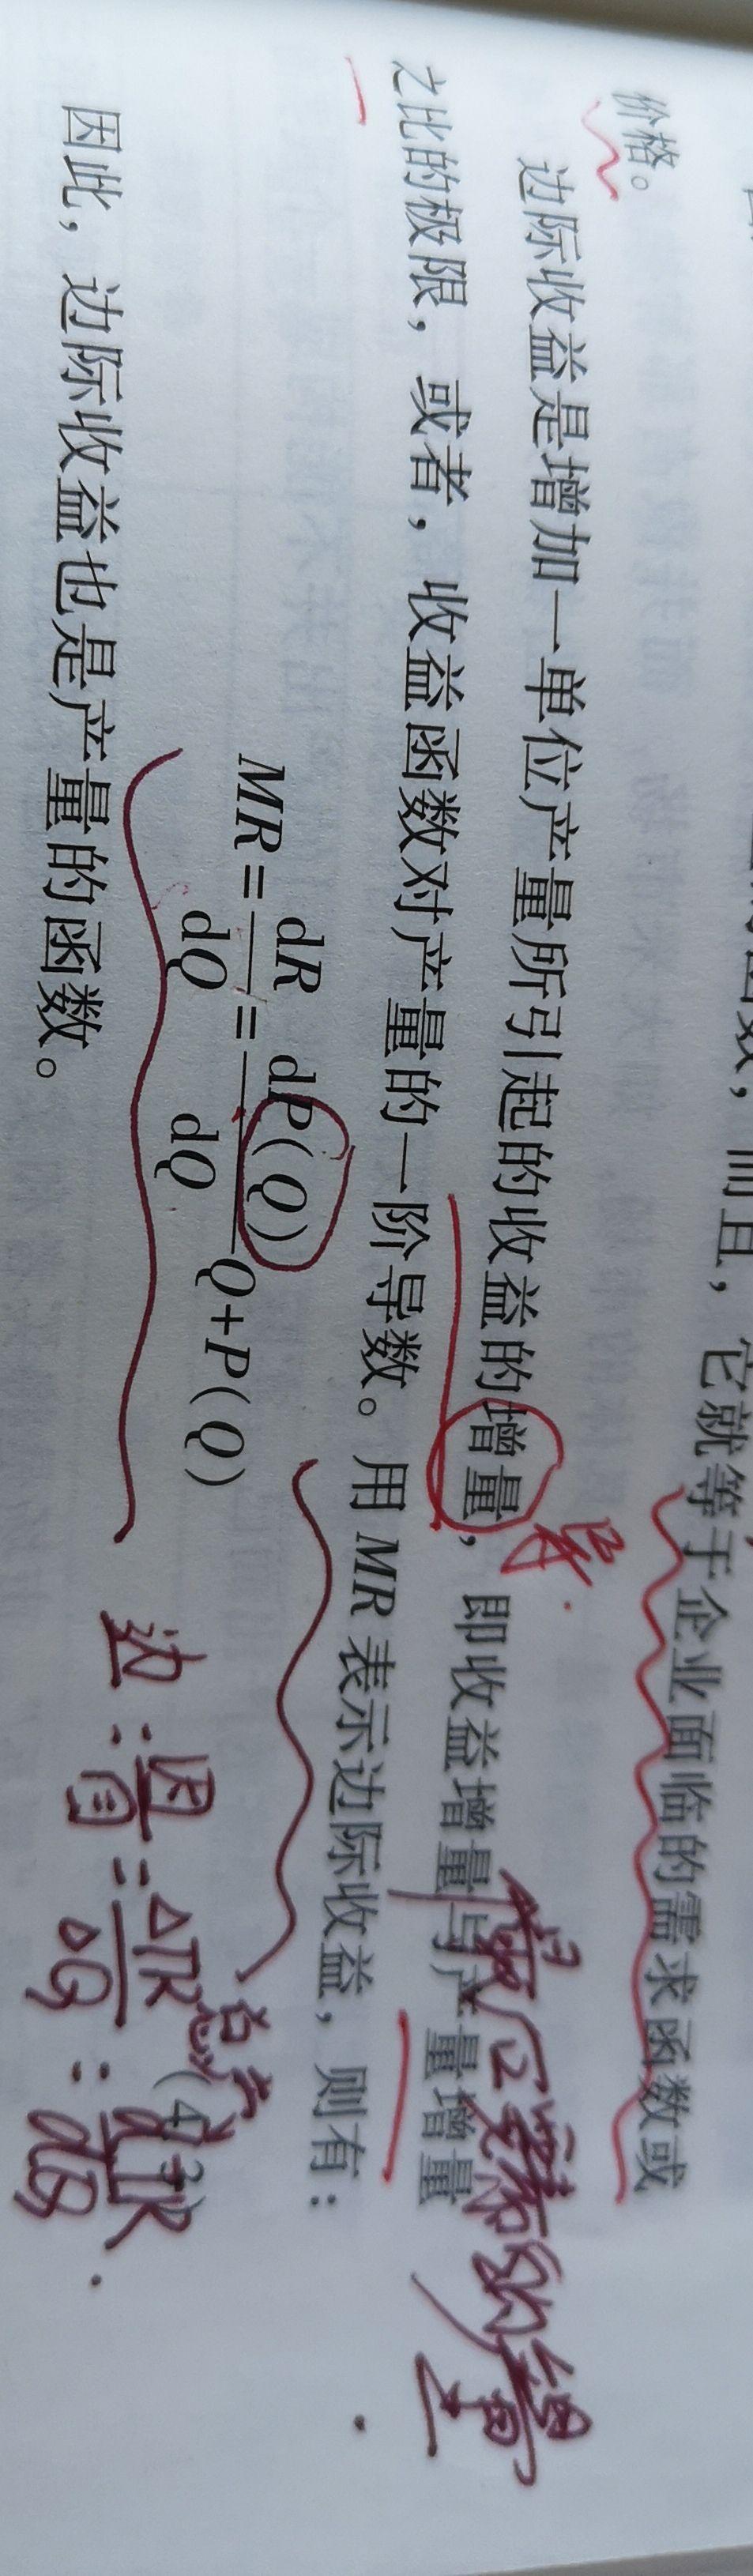 函数，而且，它就等于企业面临的需求函数或
价格。
边际收益是增加一单位产量所引起的收益的增量，即收益增量与产量增量
之比的极限，或者，收益函数对产量的一阶导数。用 MR 表示边际收益，则有：
MR=dR/dQ=dP(Q)/dQ Q+P(Q) (4.3)
因此，边际收益也是产量的函数。
边：因/自=ΔTR/ΔQ=dTR/dQ.